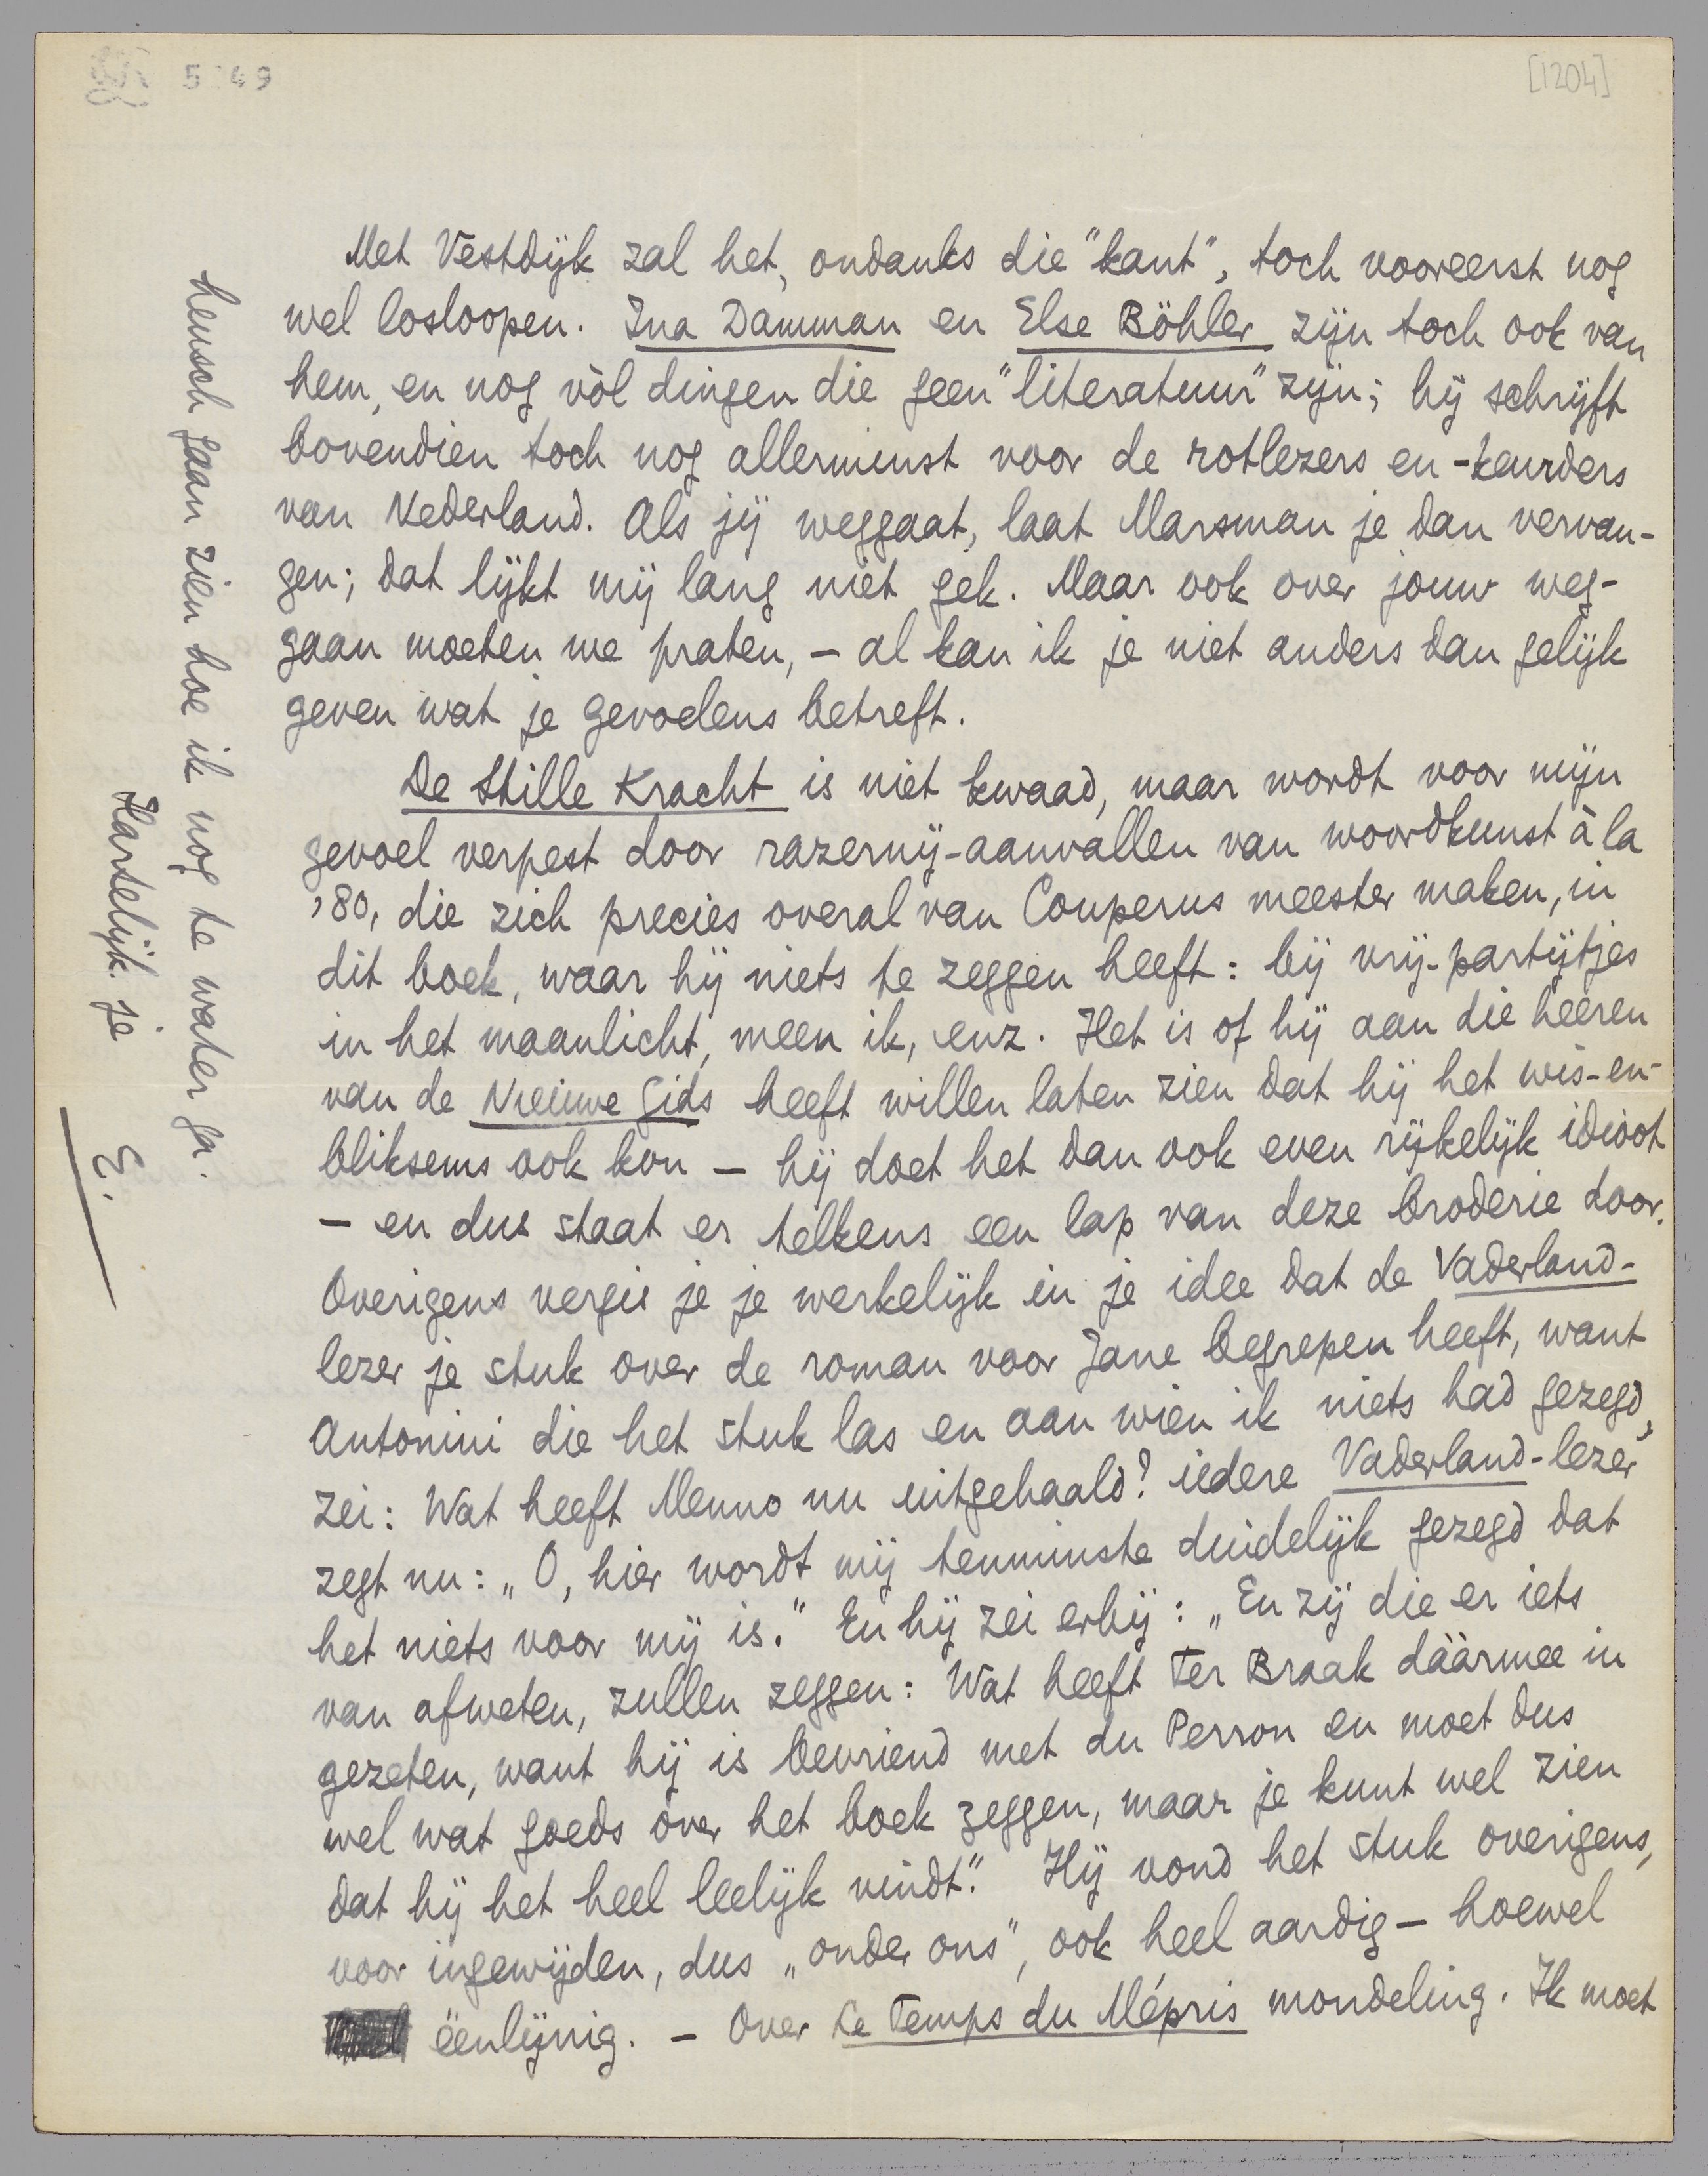 5149
[1204]
Met Vestdijk zal het, ondanks die "kant", toch vooreerst nog
wel losloopen. Ina Damman en Else Böhler zijn toch ook van
hem, en nog vòl dingen die geen "literatuur" zijn; hij schrijft
bovendien toch nog allerminst voor de rotlezers en -keurders
van Nederland. Als jij weggaat, laat Marsman je dan vervan-
gen; dat lijkt mij lang niet gek. Maar ook over jouw weg-
gaan moeten we praten, – al kan ik je niet anders dan gelijk
geven wat je gevoelens betreft.
De Stille Kracht is niet kwaad, maar wordt voor mijn
gevoel verpest door razernij-aanvallen van woordkunst à la
'80, die zich precies overal van Couperus meester maken, in
dit boek, waar hij niets te zeggen heeft: bij vrij-partijtjes
in het maanlicht, meen ik, enz. Het is of hij aan die heeren
van de Nieuwe Gids heeft willen laten zien dat hij het wis-en-
bliksems ook kon – hij doet het dan ook even rijkelijk idioot
– en dus staat er telkens een lap van deze broderie door.
Overigens vergis je je werkelijk in je idee dat de Vaderland-
lezer je stuk over de roman voor Jane begrepen heeft, want
Antonini die het stuk las en aan wien ik niets had gezegd,
zei: Wat heeft Menno nu uitgehaald? iedere Vaderland-lezer
zegt nu: „O, hier wordt mij tenminste duidelijk gezegd dat
het niets voor mij is." En hij zei erbij: „En zij die er iets
van afweten, zullen zeggen: Wat heeft Ter Braak dáármee in
gezeten, want hij is bevriend met du Perron en moet dus
wel wat goeds over het boek zeggen, maar je kunt wel zien
dat hij het heel leelijk vindt." Hij vond het stuk overigens,
voor ingewijden, dus „onder ons", ook heel aardig – hoewel
éénlijnig. – Over Le Temps du Mépris mondeling. Ik moet
heusch gaan zien hoe ik nog te water ga.
Hartelijk je
E.